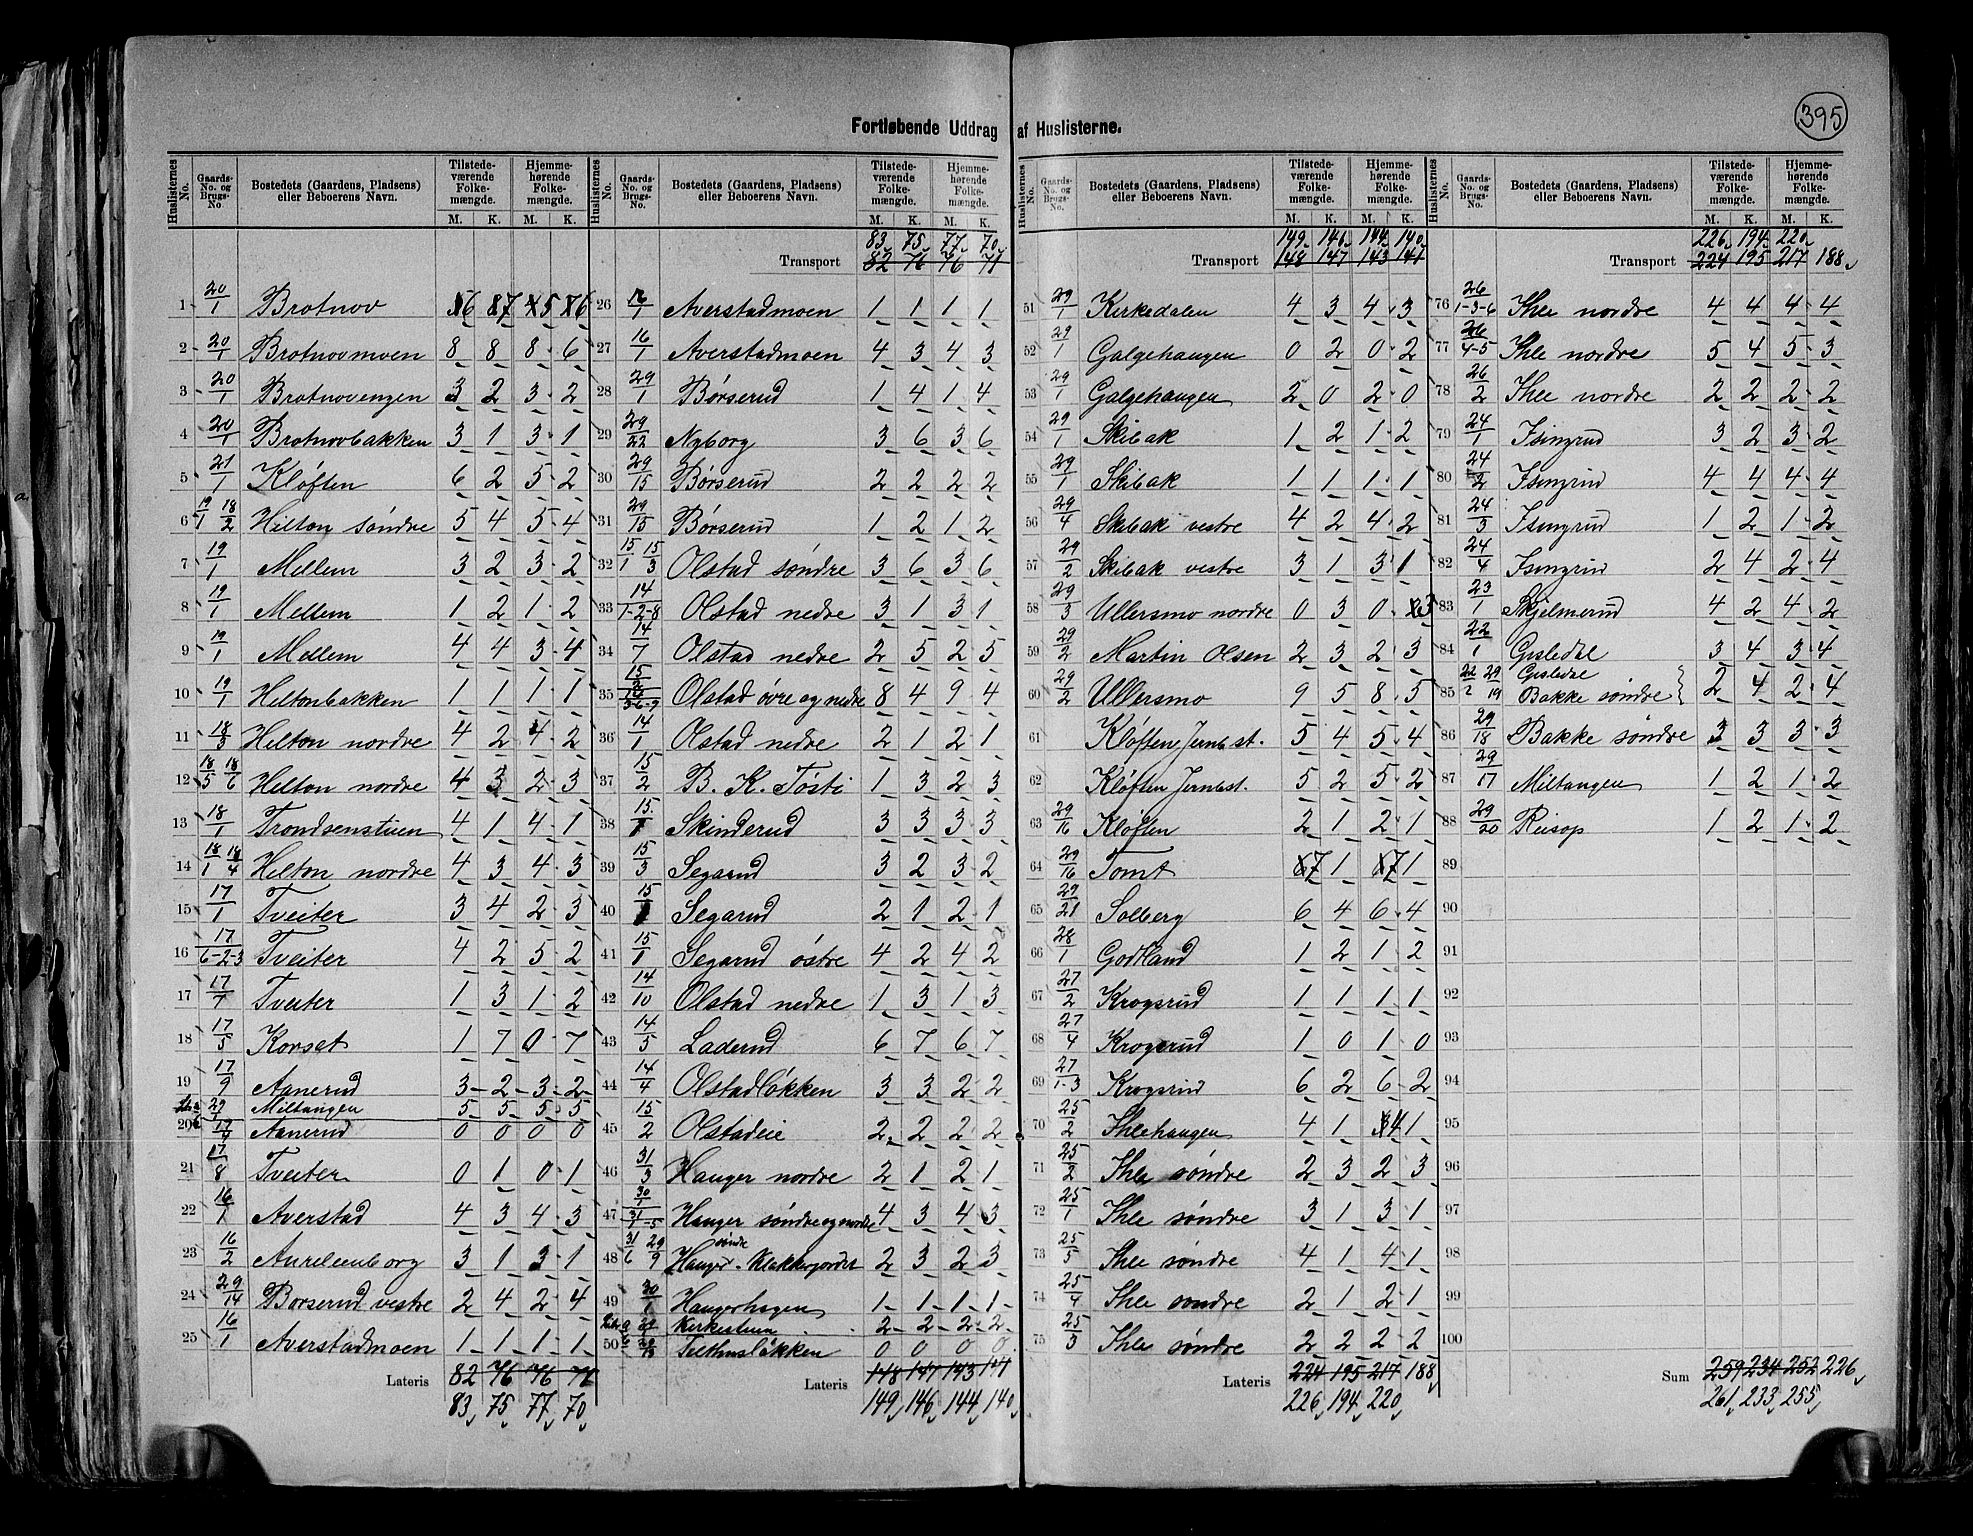 395
Fortløbende Uddrag af Huslisterne.
Huslisternes No. Gaards-No. og Brugs-No Bostedets (Gaardens, Pladsens) eller Beboerens Navn. Tilstedeværende Folkemængde. M. K. Hjemmehørende Folkemængde. M. K.
1 20/1 Brotnov 16 17 15 16
2 20/1 Brotnovmoen 8 8 8 6
3 20/1 Brotnovengen 3 2 3 2
4 20/1 Brotnovbakken 3 1 3 1
5 21/1 Kløften 6 2 5 2
6 19/1 18/2 Hilton søndre 5 4 5 4
7 19/1 Mellem 3 2 3 2
8 19/1 Mellem 1 2 1 2
9 19/1 Mellem 4 4 3 4
10 19/1 Hiltonbakken 1 1 1 1
11 18/3 Hilton nordre 4 2 4 2
12 18/5 18/6 Hilton nordre 4 3 2 3
13 18/1 Trondsenstuen 4 1 4 1
14 18/1 18/4 Hilton nordre 4 3 4 3
15 17/1 Tveiter 3 4 2 3
16 17/6-2-3 Tveiter 4 2 5 2
17 17/7 Tveiter 1 3 1 2
18 17/5 Korset 1 7 0 7
19 17/9 Aanerud 3 2 3 2
29/1 Miltangen 5 5 5 5
20 17/4 Aanerud 0 0 0 0
21 17/8 Tveiter 0 1 0 1
22 16/1 Averstad 4 3 4 3
23 16/2 Aurelienborg 3 1 3 1
24 29/14 Børserud vestre 2 4 2 4
25 16/1 Averstadmoen 1 1 1 1
Lateris 82 76 76 71
83 75 77 70
Huslisternes No. Gaards-No. og Brugs-No. Bostedets (Gaardens, Pladsens) eller Beboerens Navn. Tilstedeværende Folkemængde. M. K. Hjemmehørende Folkemængde. M. K.
83 75 77 70
Transport 82 76 76 71
26 16/1 Averstadmoen 1 1 1 1
27 16/1 Averstadmoen 4 3 4 3
28 29/1 Børserud 1 4 1 4
29 29/22 Nyborg 3 6 3 6
30 29/15 Børserud 2 2 2 2
31 29/15 Børserud 1 2 1 2
32 15/1 15/3 Olstad søndre 3 6 3 6
33 14/1-2-8 Olstad nedre 3 1 3 1
34 14/7 Olstad nedre 2 5 2 5
35 15/2 Olstad øvre og nedre 8 4 9 4
36 14/1 Olstad nedre 2 1 2 1
37 15/2 B. K. Tøsti 1 3 2 3
38 15/1 Skinderud 3 3 3 3
39 15/3 Segarud 3 2 3 2
40 15/1 Segarud 2 1 2 1
41 15/1 Segarud østre 4 2 4 2
42 14/10 Olstad nedre 1 3 1 3
43 14/5 Laderud 6 7 6 7
44 14/4 Olstadløkken 3 3 2 2
45 15/2 Olstadeie 2 2 2 2
46 31/3 Hanger nordre 2 1 2 1
47 30/1 31/1-5 Hanger søndre og nordre 4 3 4 3
48 31/6 29/9 Hanger søndre Klakkerjordet 2 3 2 3
49 30/1 Hangerhagen 1 1 1 1
Kirkestuen 2 2 2 2
50 29/13 Telthusløkken 0 0 0 0
Lateris 148 147 143 141
149 146 144 140
Huslisternes No. Gaards-No. og Brugs-No. Bostedets (Gaardens, Pladsens) eller Beboerens Navn. Tilstedeværende Folkemængde. M. K. Hjemmehørende Folkemængde. M. K.
149 146 144 140
Transport 148 147 143 141
51 29/1 Kirkedalen 4 3 4 3
52 29/1 Galgehaugen 0 2 0 2
53 29/1 Galgehaugen 2 0 2 0
54 29/1 Skibak 1 2 1 2
55 29/1 Skibak 1 1 1 1
56 29/4 Skibak vestre 4 2 4 2
57 29/2 Skibak vestre 3 1 3 1
58 29/3 Ullersmo nordre 0 3 0 3
59 29/2 Martin Olsen 2 3 2 3
60 29/2 Ullersmo 9 5 8 5
61 Kløften Jernbst. 5 4 5 4
62 Kløften Jernbst. 5 2 5 2
63 29/16 Kløften 2 1 2 1
64 29/16 Tomt 7 1 7 1
65 29/21 Solberg 6 4 6 4
66 28/1 Godtland 1 2 1 2
67 27/2 Krogsrud 1 1 1 1
68 27/4 Krogsrud 1 0 1 0
69 27/1-3 Krogsrud 6 2 6 2
70 25/2 Ihlehaugen 4 1 4 1
71 25/2 Ihle søndre 2 3 2 3
72 25/1 Ihle søndre 3 1 3 1
73 25/5 Ihle søndre 4 1 4 1
74 25/4 Ihle søndre 2 1 2 1
75 25/3 Ihle søndre 2 2 2 2
Lateris 224 195 217 188
226 194 220
Huslisternes No. Gaards-No. og Brugs-No. Bostedets (Gaardens, Pladsens) eller Beboerens Navn. Tilstedeværende Folkemængde. M. K. Hjemmehørende Folkemængde. M. K.
226 194 220
Transport 224 195 217 188
76 26/1-3-6 Ihle nordre 4 4 4 4
77 26/4-5 Ihle nordre 5 4 5 3
78 26/2 Ihle nordre 2 2 2 2
79 24/1 Isingrud 3 2 3 2
80 24/2 Isingrud 4 4 4 4
81 24/3 Isingrud 1 2 1 2
82 24/4 Isingrud 2 4 2 4
83 23/1 Skjelmerud 4 2 4 2
84 22/1 Gisledal 3 4 3 4
85 22/2 29/19 Gisledal Bakke søndre 2 4 2 4
86 29/18 Bakke søndre 3 3 3 3
87 29/17 Miltangen 1 2 1 2
88 29/20 Reisop 1 2 1 2
89
90
91
92
93
94
95
96
97
98
99
100
Sum 259 234 252 226
261 233 255